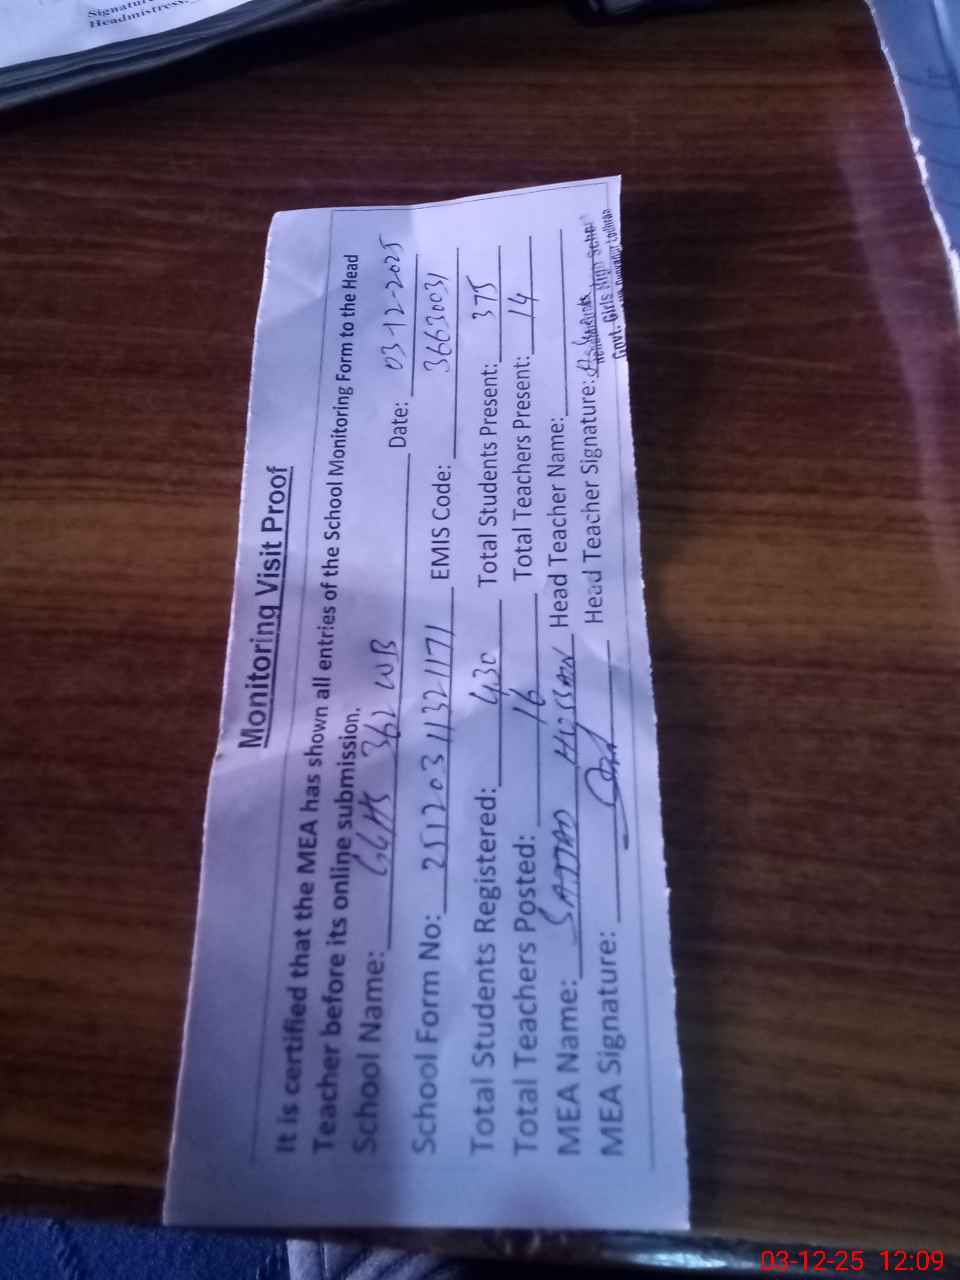 Signature
Headmistress.
Monitoring Visit Proof
It is certified that the MEA has shown all entries of the School Monitoring Form to the Head
Teacher before its online submission.
School Name: GGHS 362 WB Date: 03-12-2025
School Form No: 251203 11321171 EMIS Code: 36630031
Total Students Registered: 430 Total Students Present: 375
Total Teachers Posted: 16 Total Teachers Present: 14
MEA Name: SAJJAD HUSSAIN Head Teacher Name:
MEA Signature: Head Teacher Signature:
Headmistress
Govt. Girls High School
Lodhran
03-12-25 12:09